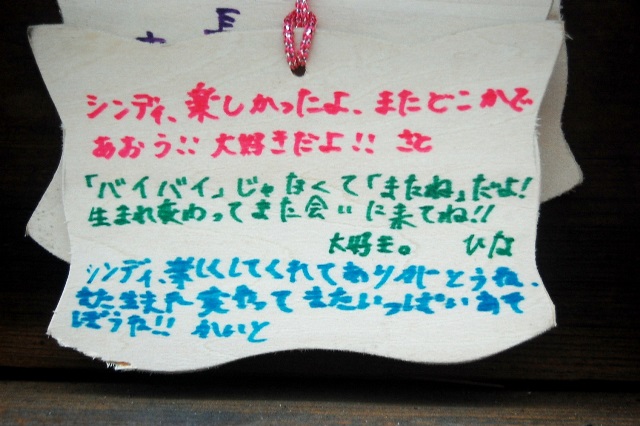 シンディ、楽しかったよ、またどこかで
あおう!! 大好きだよ!! さと
「バイバイ」じゃなくて「またね」だよ!
生まれ変わってまた会いに来てね!!
大好き。 ひな
シンディ、楽しくしてくれてありがとうね、
また生まれ変わってまたいっぱいあそ
ぼうね!! かいと